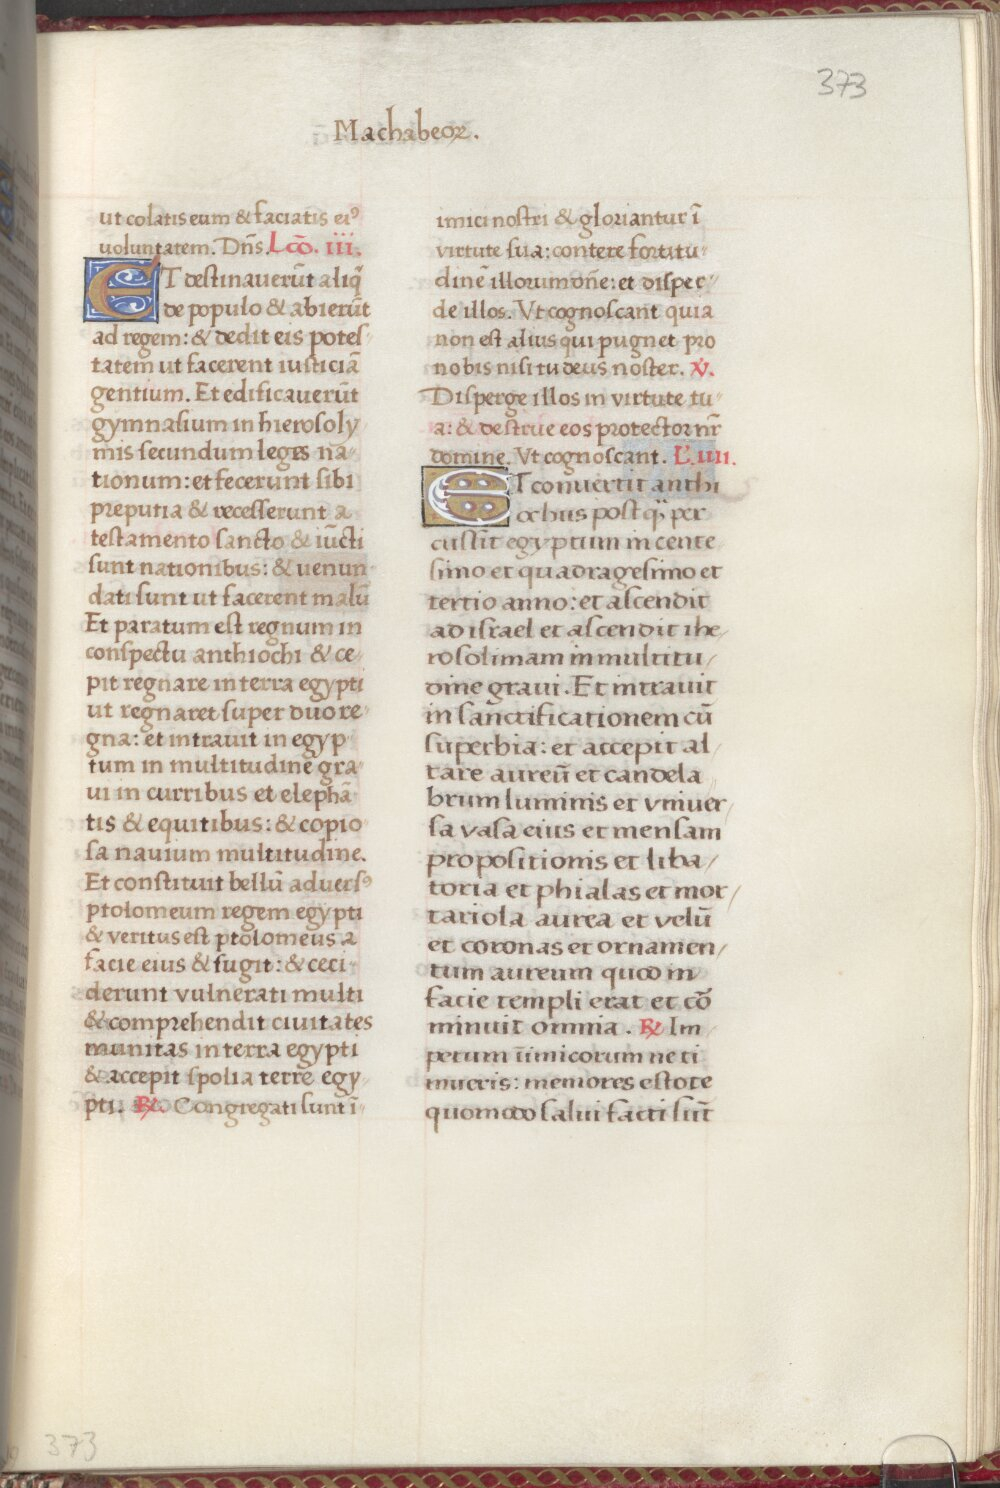 373
Machabeoꝝ.
ut colatis eum & faciatis eiꝰ
uoluntatem. Dn̄s. Lcō. iii.
ET destinauerūt aliq̄
de populo & abierūt
ad regem: & dedit eis potes
tatem ut facerent iusticiā
gentium. Et edificauerūt
gymnasium in hierosoly
mis secundum leges na
tionum: et fecerunt sibi
preputia & recesserunt a
testamento sancto & iūcti
sunt nationibus: & uenun
dati sunt ut facerent malū
Et paratum est regnum in
conspectu anthiochi & ce
pit regnare in terra egypti
ut regnaret super duo re
gna: et intrauit in egyp
tum in multitudine gra
ui in curribus et elephā
tis & equitibus: & copio
sa nauium multitudine.
Et constituit bellū aduersꝰ
ptolomeum regem egypti
& veritus est ptolomeus a
facie eius & fugit: & ceci
derunt vulnerati multi
& comprehendit ciuitates
munitas in terra egypti
& accepit spolia terre egy
pti. ℟. Congregati sunt ī
imici nostri & gloriantur ī
virtute sua: contere fortitu
dinē illorum dn̄e: et disper
de illos. Vt cognoscant quia
non est alius qui pugnet pro
nobis nisi tu deus noster. ℣.
Disperge illos in virtute tu
a: & destrue eos protector nr̄
domine. Vt cognoscant. L. iiii.
ET conuertit anthi
ochus post q̄ per
custit egyptum in cente
simo et quadragesimo et
tertio anno: et ascendit
ad israel et ascendit ihe
rosolimam in multitu
dine graui. Et intrauit
in sanctificationem cū
superbia: et accepit al
tare aureū et candela
brum luminis et vniuer
sa vasa eius et mensam
propositionis et liba
toria et phialas et mor
tariola aurea et velū
et coronas et ornamen
tum aureum quod in
facie templi erat et cō
minuit omnia. ℟ Im
petum inimicorum ne ti
mueris: memores estote
quomodo salui facti sūt
373